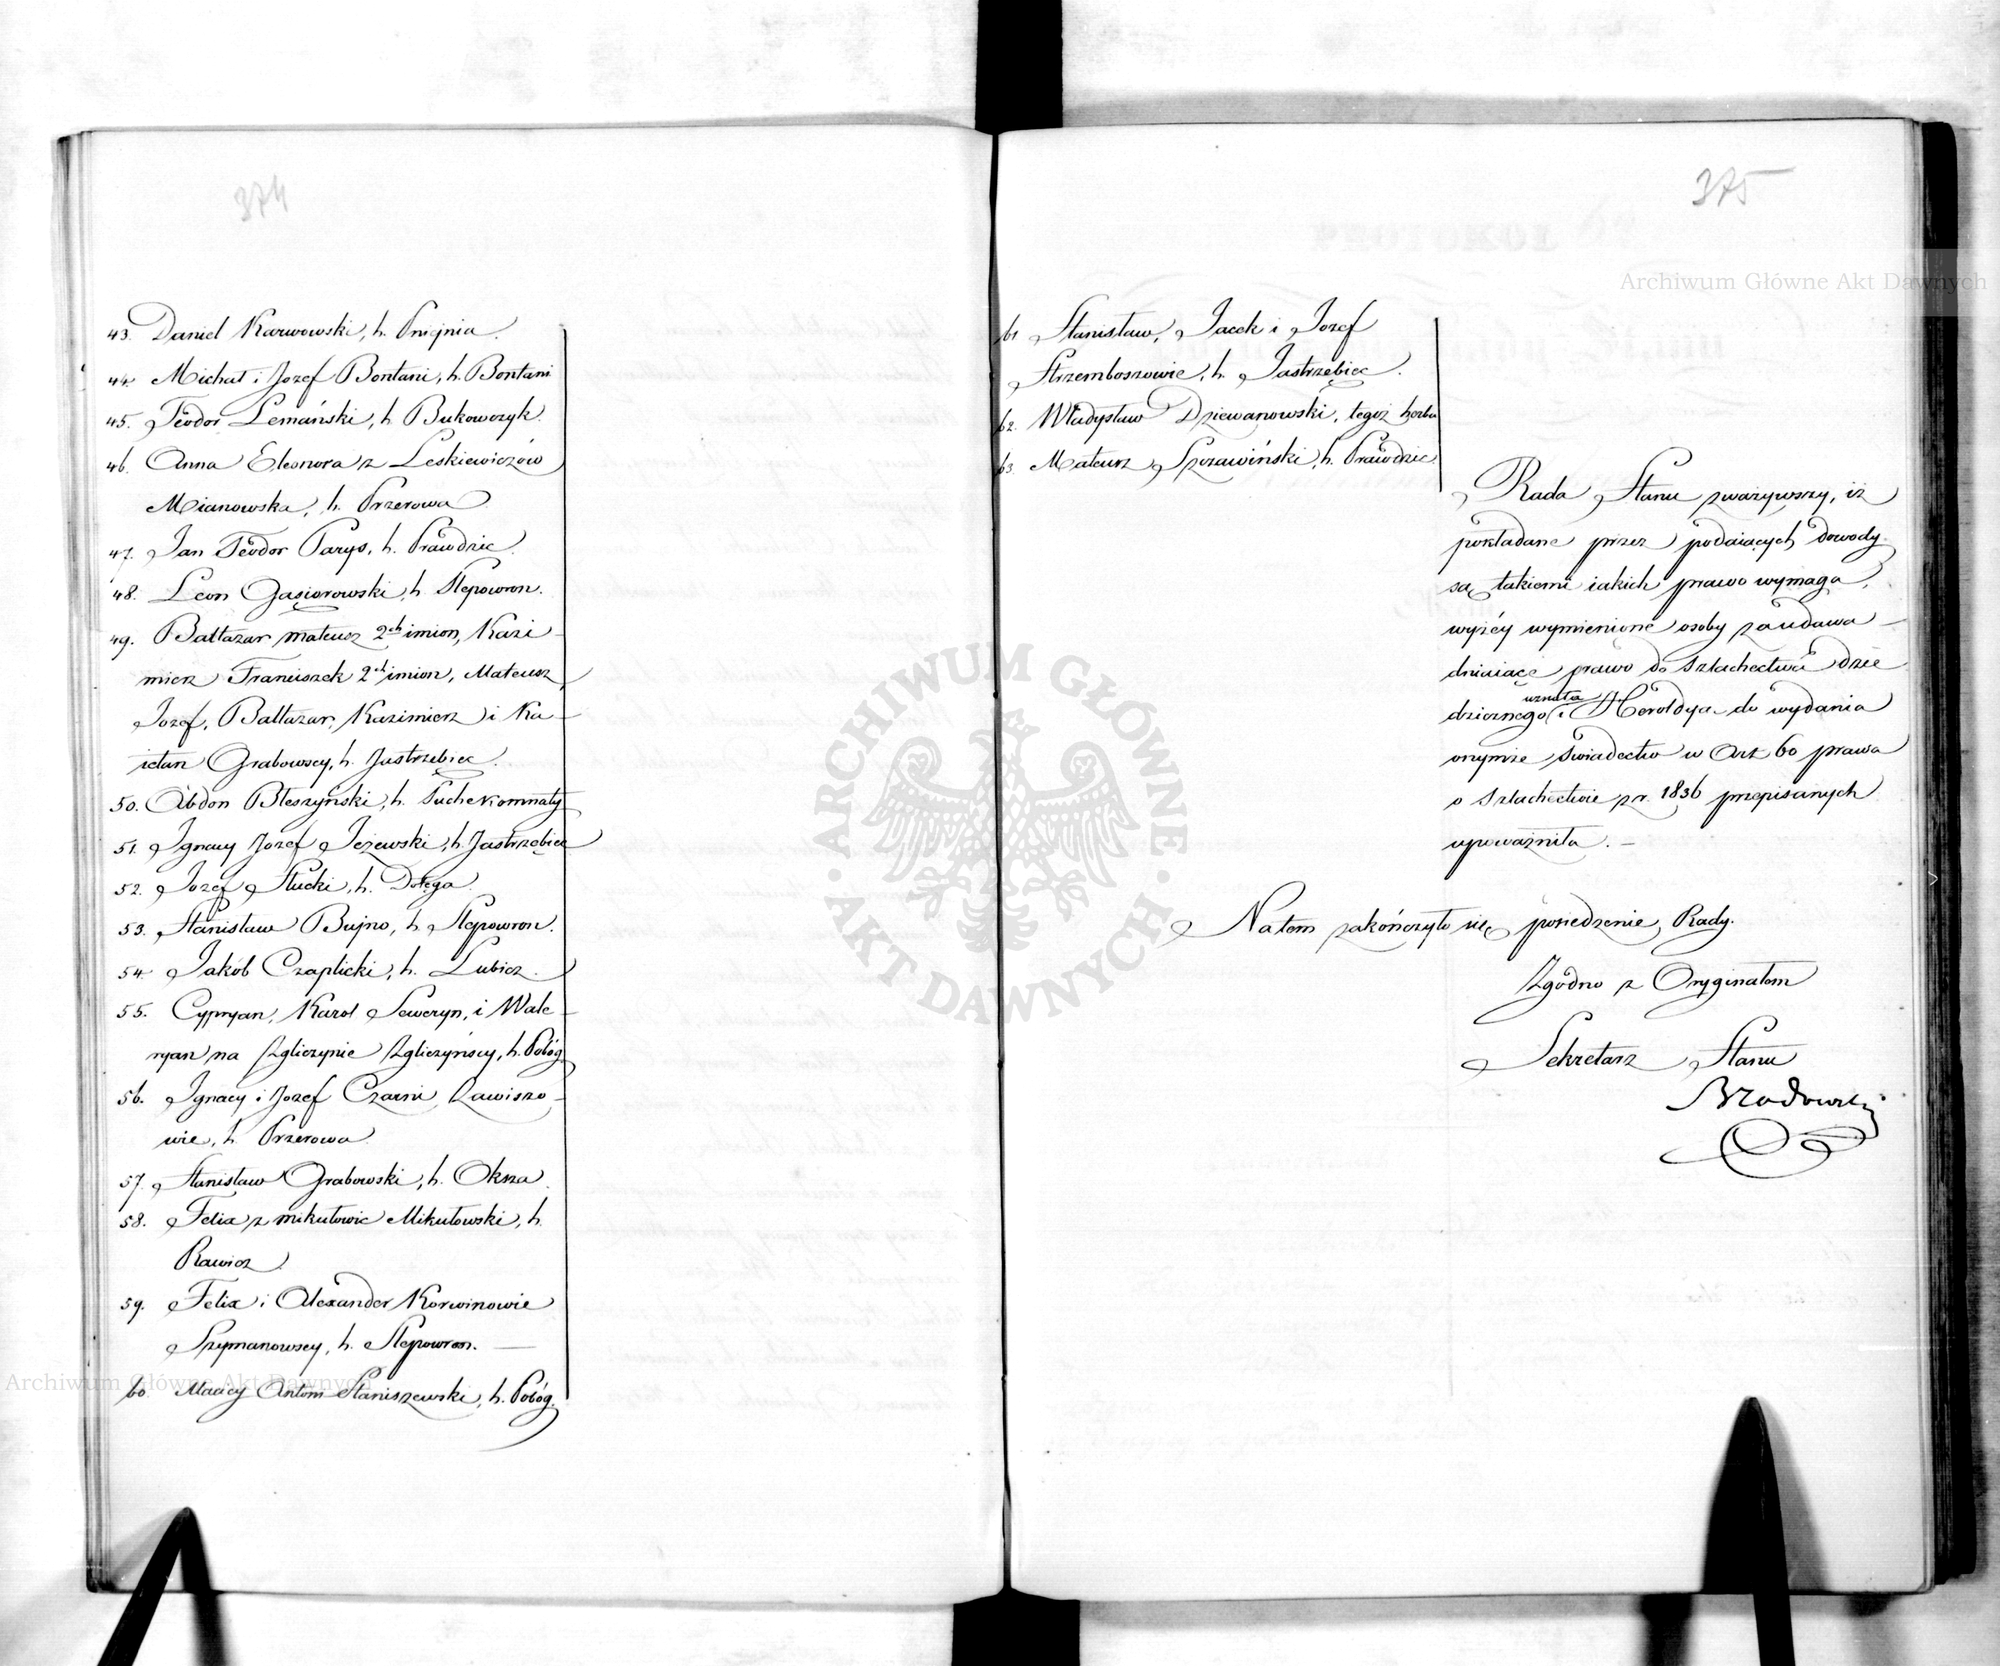 374
43. Daniel Karwowski, h. Pniejnia.
44. Michał i Jozef Bontani, h. Bontani
45. Teodor Lemański, h. Bukowczyk.
46. Anna Eleonora z Leskiewiczów
Mianowska, h. Przerowa
47. Jan Teodor Parys, h. Prawdzic.
48. Leon Gąsiorowski, h. Slepowron.
49. Baltazar Mateusz 2ch imion, Kazi-
mierz Franciszek 2ch imion, Mateusz,
Jozef, Baltazar, Kazimierz i Ka-
ietan Grabowscy, h. Jastrzębiec.
50. Abdon Błeszyński, h. Suchekomnaty
51. Ignacy Jozef Jeżewski, h. Jastrzębiec
52. Jozef Słucki, h. Dołęga.
53. Stanisław Bujno, h. Slepowron.
54. Jakób Czaplicki, h. Lubicz.
55. Cypryan, Karol Seweryn, i Wale-
ryan na Zgliczynie Zgliczyńscy, h. Pobóg
56. Ignacy i Jozef Czarni Zawiszo-
wie, h. Przerowa
57. Stanisław Grabowski, h. Oksza.
58. Felix z Mikułowic Mikułowski, h.
Rawicz
59. Felix i Alexander Korwinowie
Szymanowscy, h. Slepowron. —
60. Maciey Antoni Staniszewski, h. Pobóg.
375
61 Stanisław, Jacek i Jozef
Strzemboszowie, h. Jastrzębiec.
62. Władysław Dziewanowski, tegoż herbu
63. Mateusz Szorawiński, h. Prawdzic.
Rada Stanu zważywszy, iż
pokładane przez podaiących dowody
są takiemi iakich prawo wymaga,
wyżéy wymienione osoby za udawa-
dniaiące prawo do szlachectwa dzie
dzicznego uznała i Heroldyą do wydania
onymże świadectw w Art 60 prawa
o szlachectwie z r. 1836 przepisanych
upoważniła. —
Na tem zakończyło się posiedzenie Rady.
Zgodno z Oryginałem
Sekretarz Stanu
Brzozowski
Archiwum Główne Akt Dawnych
Archiwum Główne Akt Dawnych
ARCHIWUM GŁÓWNE
AKT DAWNYCH